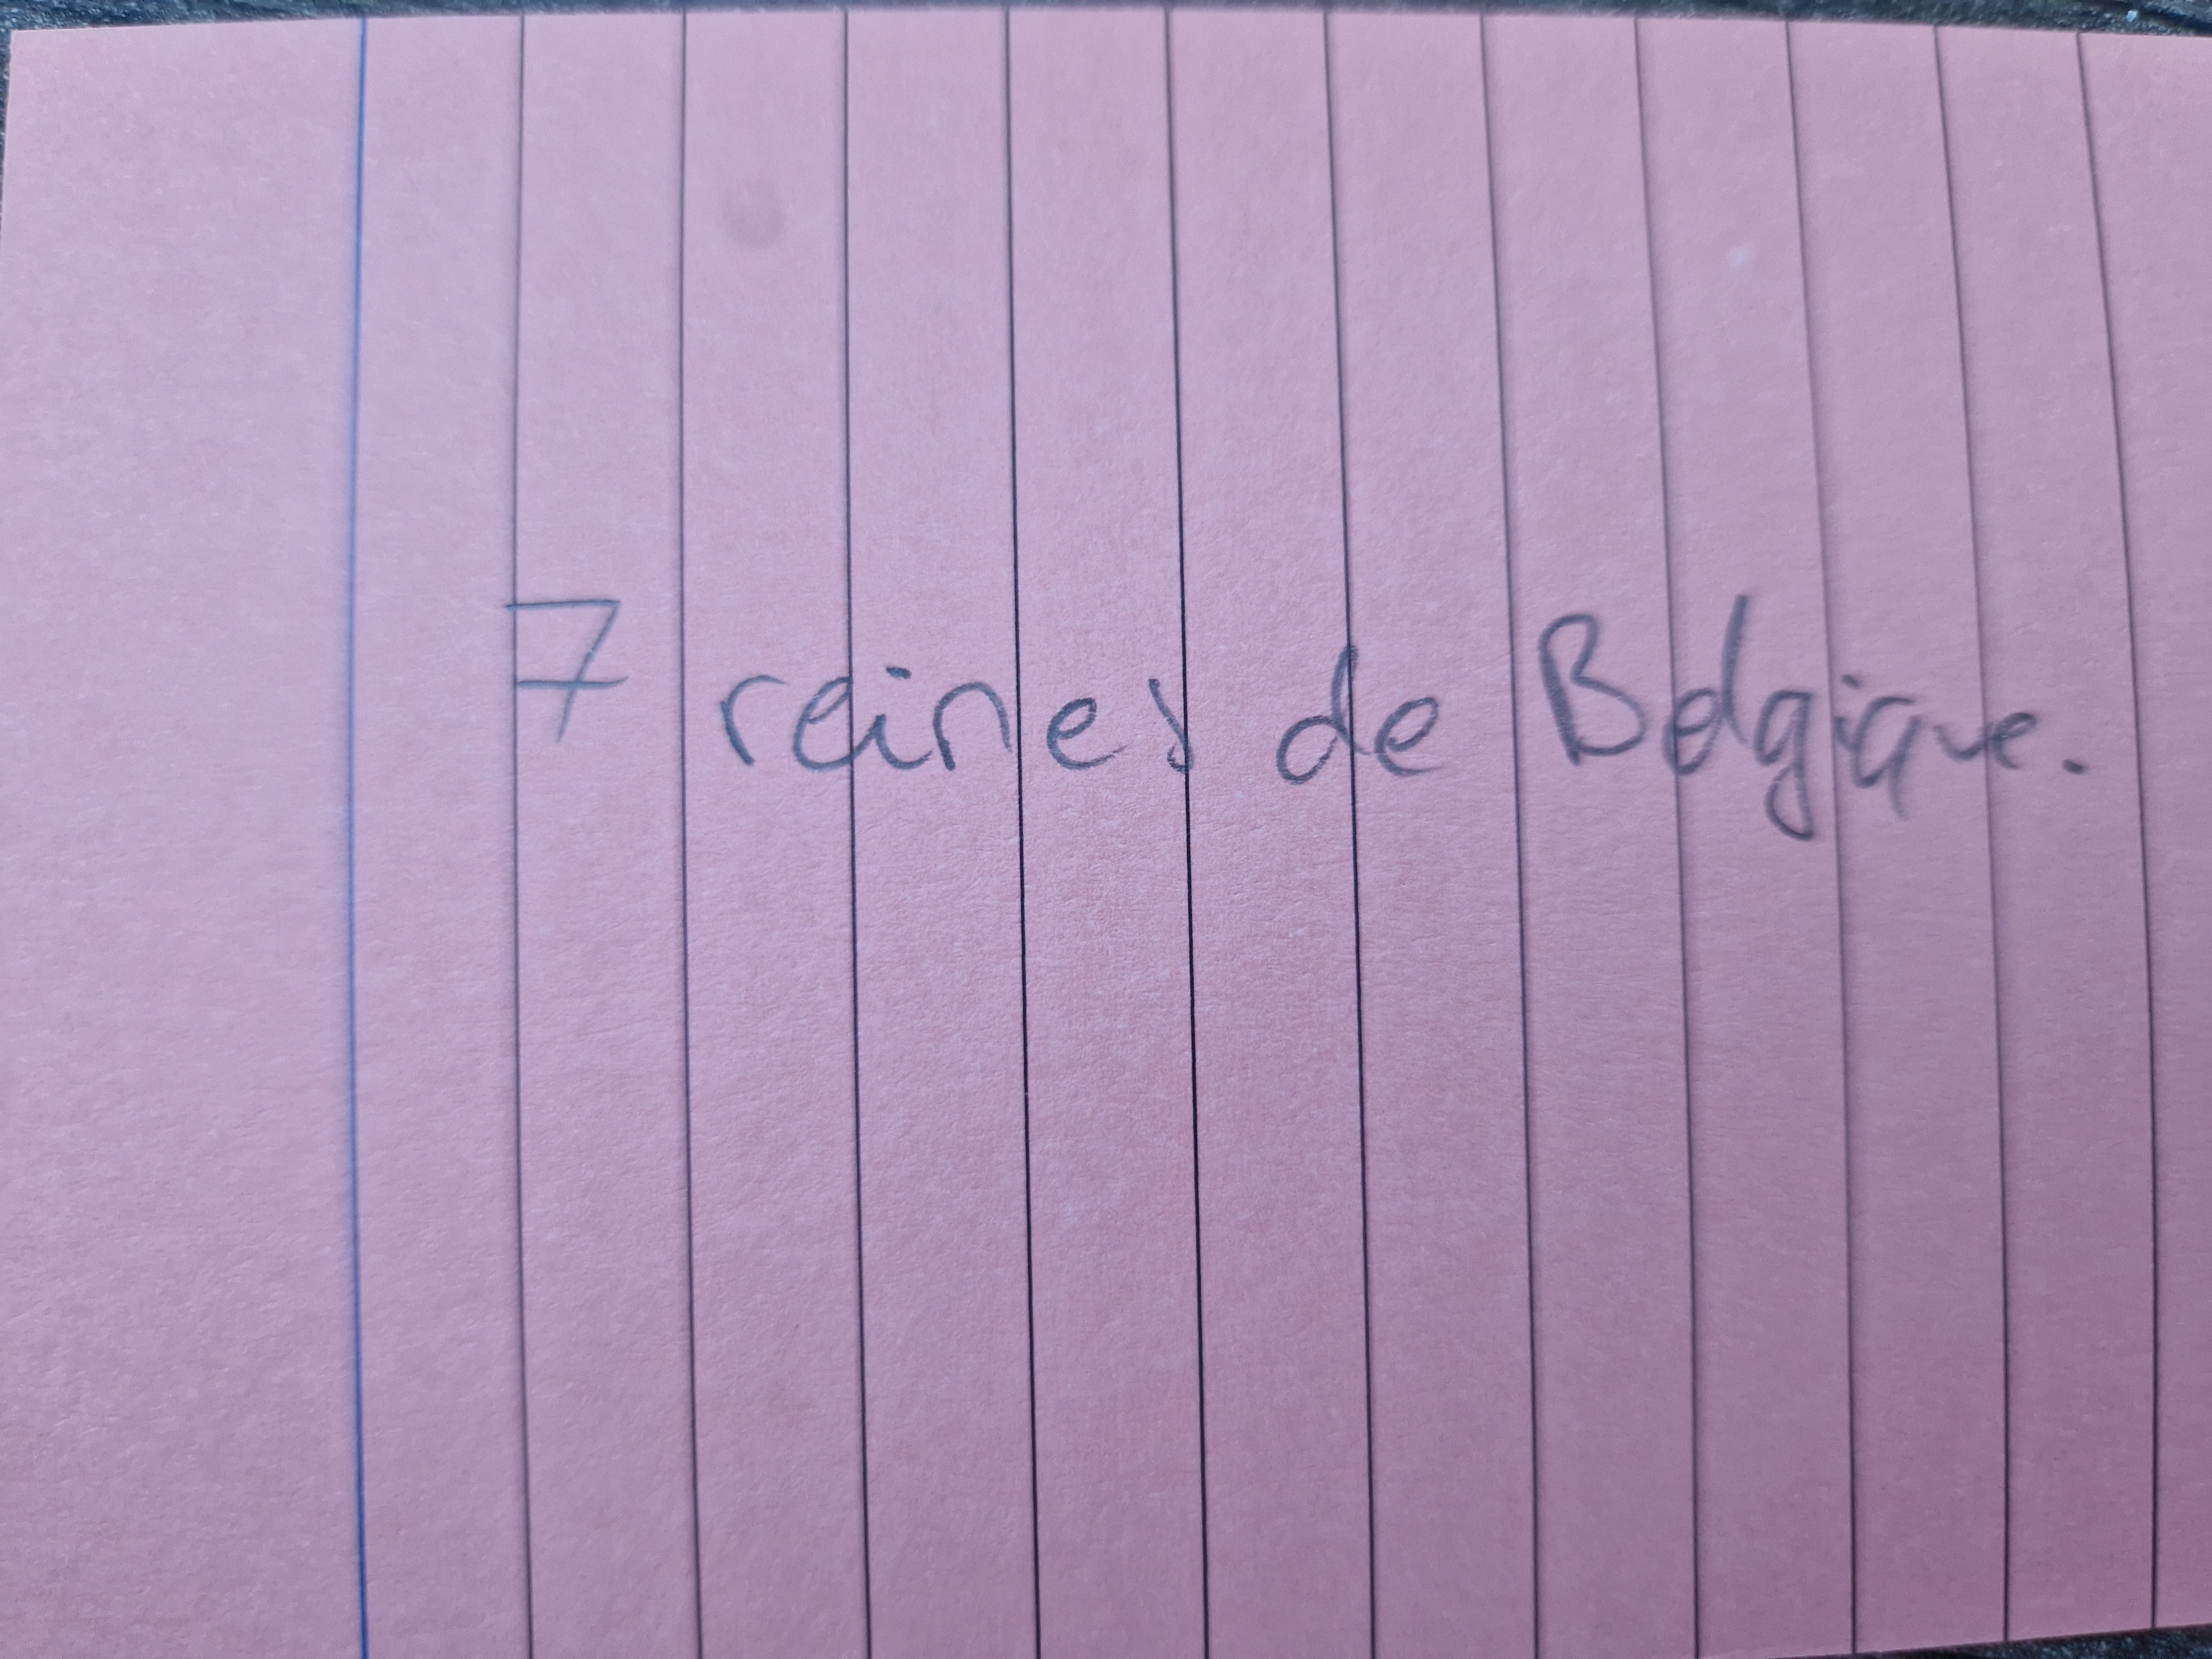 7 reines de Belgique.